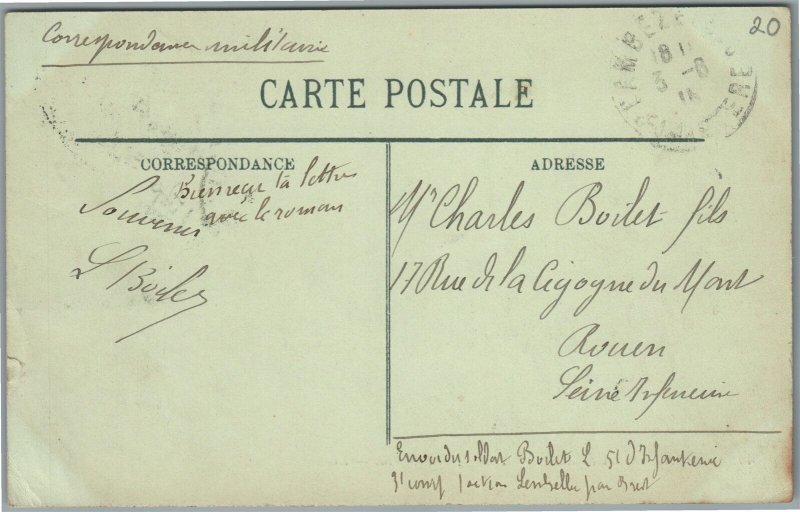 Correspondance militaire
20
CARTE POSTALE
CORRESPONDANCE
ADRESSE
Bien reçu ta lettre
avec le roman
Souvenir
L Boilet
Mr Charles Boilet fils
17 Rue de la Cigogne du Mont
Rouen
Seine Inférieure
Envoi du soldat Boilet L 51 d'Infanterie
3e comp section par Brest